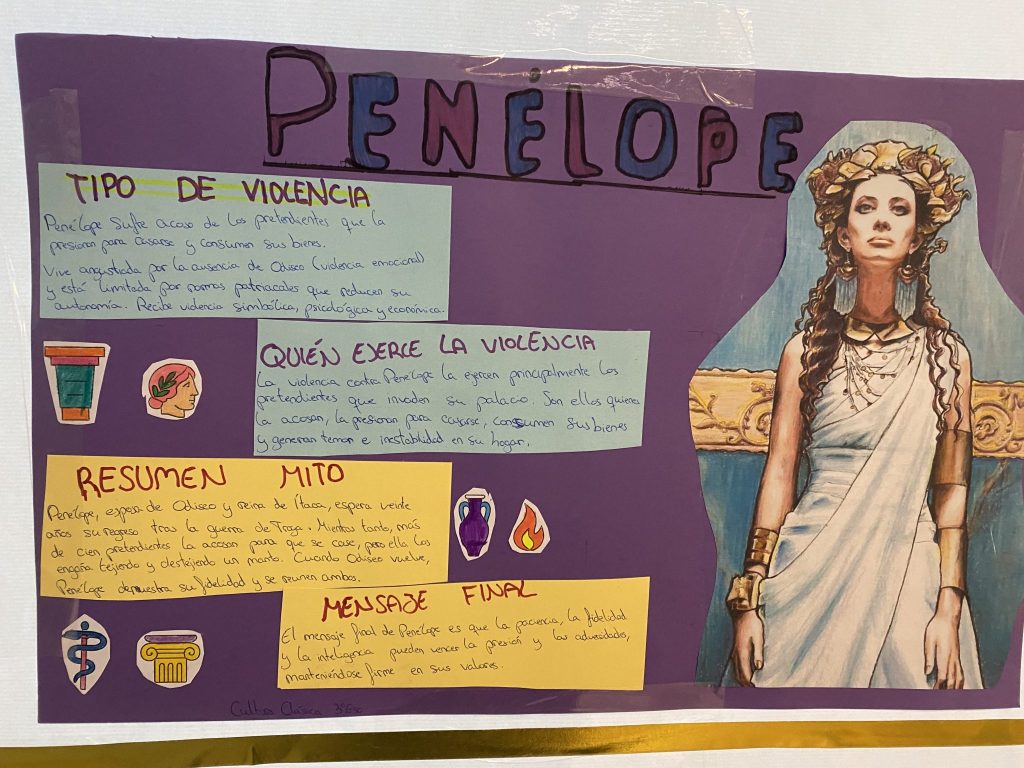 PENÉLOPE
TIPO DE VIOLENCIA
Penélope sufre acoso de los pretendientes que la
presionan para casarse y consumen sus bienes.
Vive angustiada por la ausencia de Odiseo (violencia emocional)
y está limitada por normas patriacales que reducen su
autonomía. Recibe violencia simbólica, psicológica y económica.
QUIÉN EJERCE LA VIOLENCIA
La violencia contra Penélope la ejercen principalmente los
pretendientes que invaden su palacio. Son ellos quienes
la acosan, la presionan para casarse, consumen sus bienes
y generan temor e inestabilidad en su hogar.
RESUMEN MITO
Penélope, esposa de Odiseo y reina de Ítaca, espera veinte
años su regreso tras la guerra de Troya. Mientras tanto, más
de cien pretendientes la acosan para que se case, pero ella los
engaña tejiendo y destejiendo un manto. Cuando Odiseo vuelve,
Penélope demuestra su fidelidad y se reunen ambos.
MENSAJE FINAL
El mensaje final de Penélope es que la paciencia, la fidelidad
y la inteligencia pueden vencer la presión y las adversidades,
manteniéndose firme en sus valores.
Cultura Clásica 3ºEso